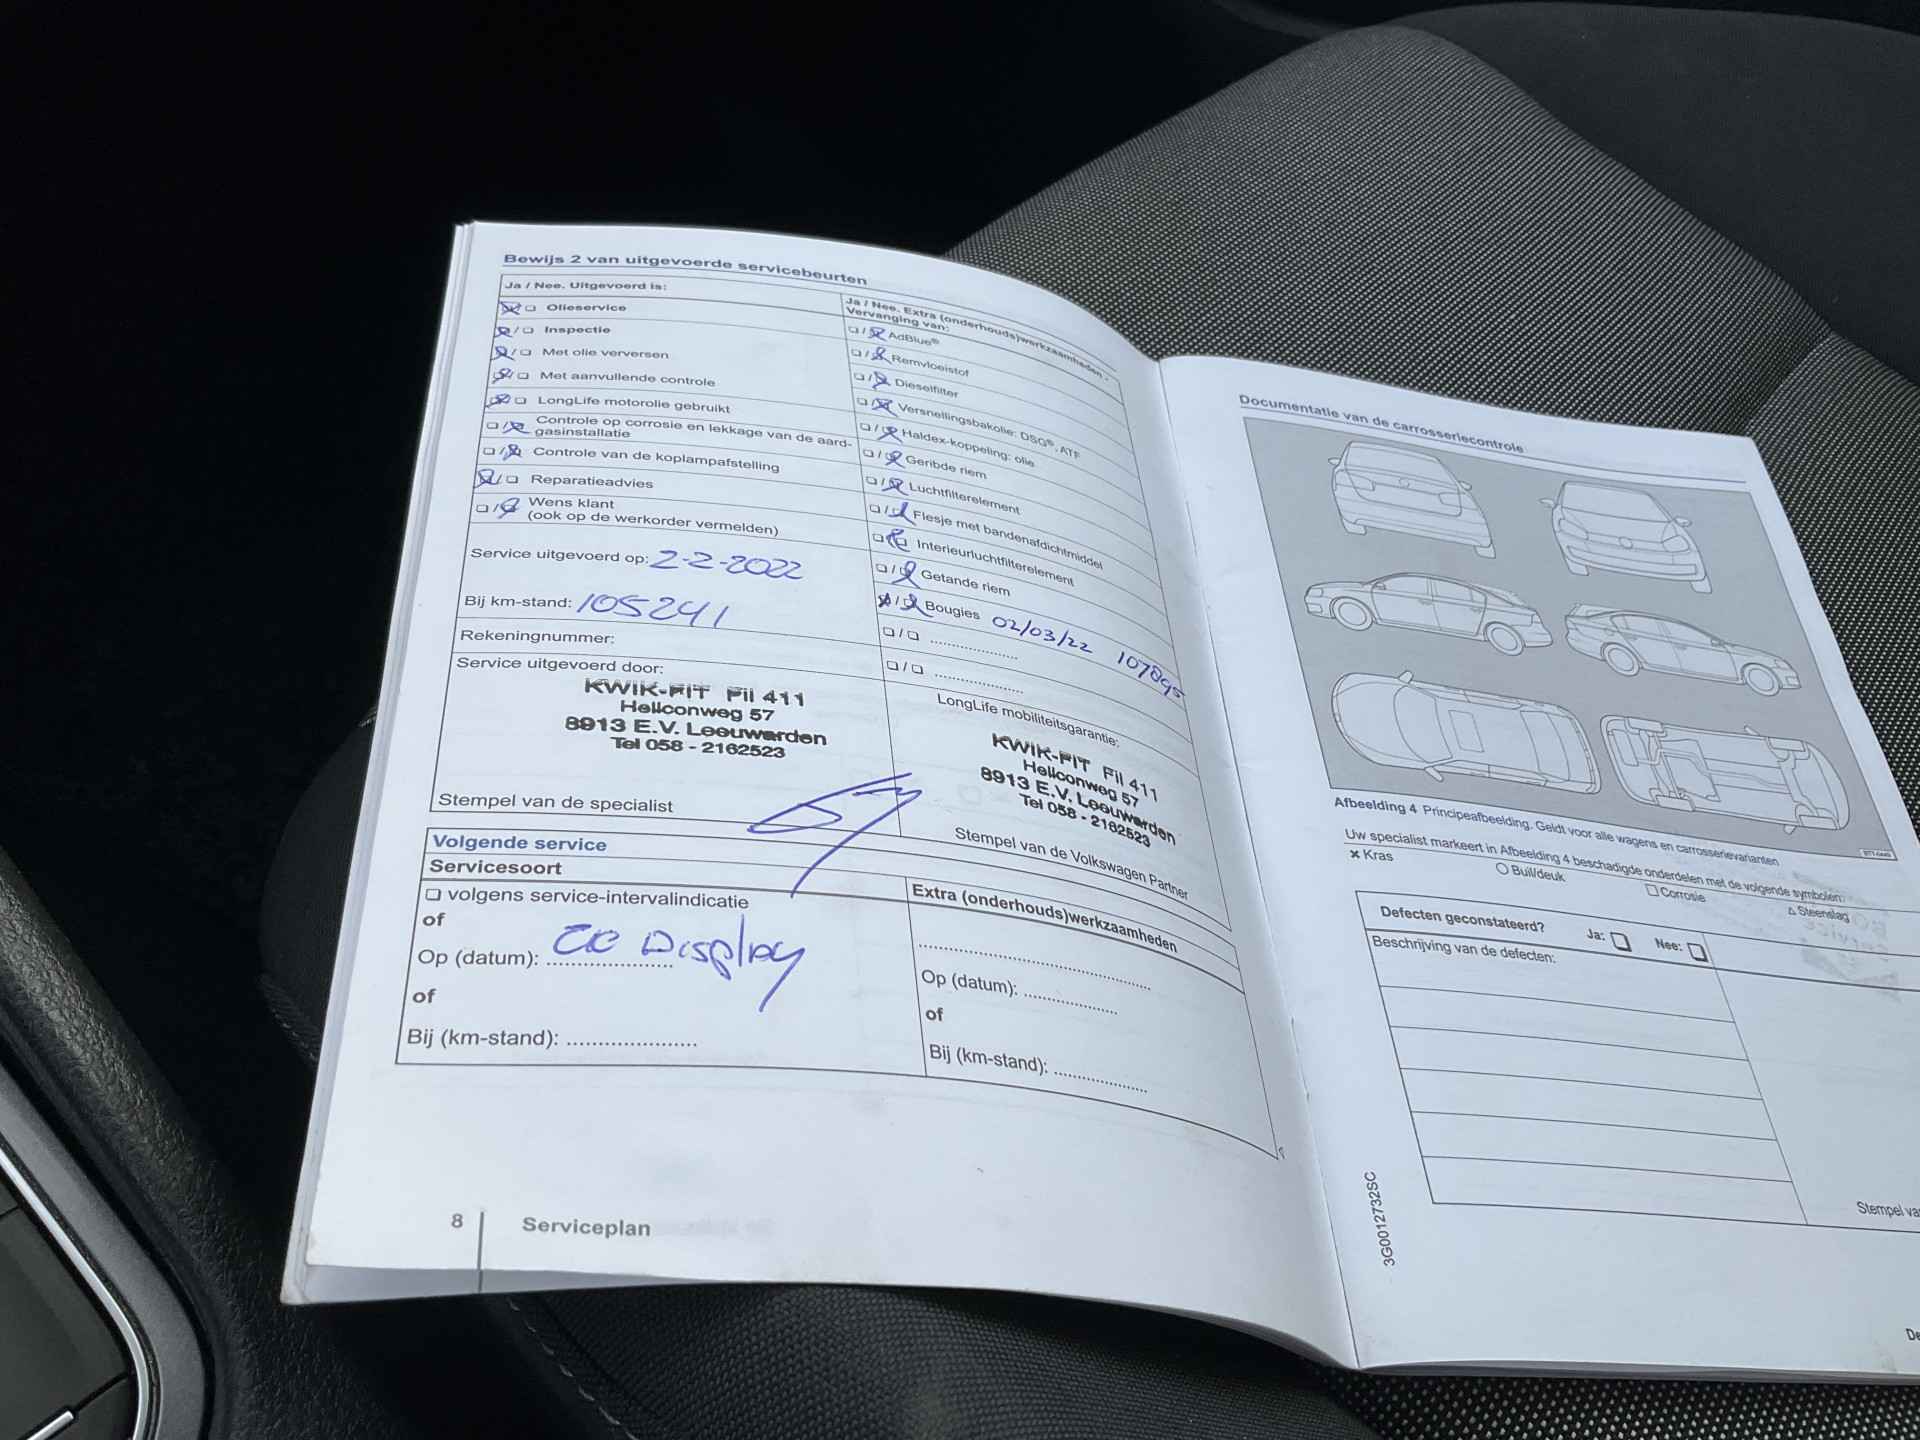 Bewijs 2 van uitgevoerde servicebeurten
Ja / Nee. Uitgevoerd is:
Olieservice
Inspectie
Met olie verversen
Met aanvullende controle
LongLife motorolie gebruikt
Controle op corrosie en lekkage van de aard-
gasinstallatie
Controle van de koplampafstelling
Reparatieadvies
Wens klant
(ook op de werkorder vermelden)
Service uitgevoerd op: 2-2-2022
Bij km-stand: 105241
Rekeningnummer:
Service uitgevoerd door:
KWIK-FIT Fil 411
Heliconweg 57
8913 E.V. Leeuwarden
Tel 058 - 2162523
Stempel van de specialist
Ja / Nee. Extra (onderhouds)werkzaamheden -
Vervanging van:
AdBlue®
Remvloeistof
Dieselfilter
Versnellingsbakolie: DSG®, ATF
Haldex-koppeling: olie
Geribde riem
Luchtfilterelement
Flesje met bandenafdichtmiddel
Interieurluchtfilterelement
Getande riem
Bougies 02/03/22 107895
LongLife mobiliteitsgarantie:
KWIK-FIT Fil 411
Heliconweg 57
8913 E.V. Leeuwarden
Tel 058 - 2162523
Stempel van de Volkswagen Partner
Volgende service
Servicesoort
volgens service-intervalindicatie
of
Op (datum): Display
of
Bij (km-stand):
Extra (onderhouds)werkzaamheden
Op (datum):
of
Bij (km-stand):
8 Serviceplan
Documentatie van de carrosseriecontrole
Afbeelding 4 Principeafbeelding. Geldt voor alle wagens en carrosserievarianten
Uw specialist markeert in Afbeelding 4 beschadigde onderdelen met de volgende symbolen:
× Kras
Buil/deuk
Corrosie
Steenslag
Defecten geconstateerd? Ja: Nee:
Beschrijving van de defecten:
Stempel
3G0012732SC